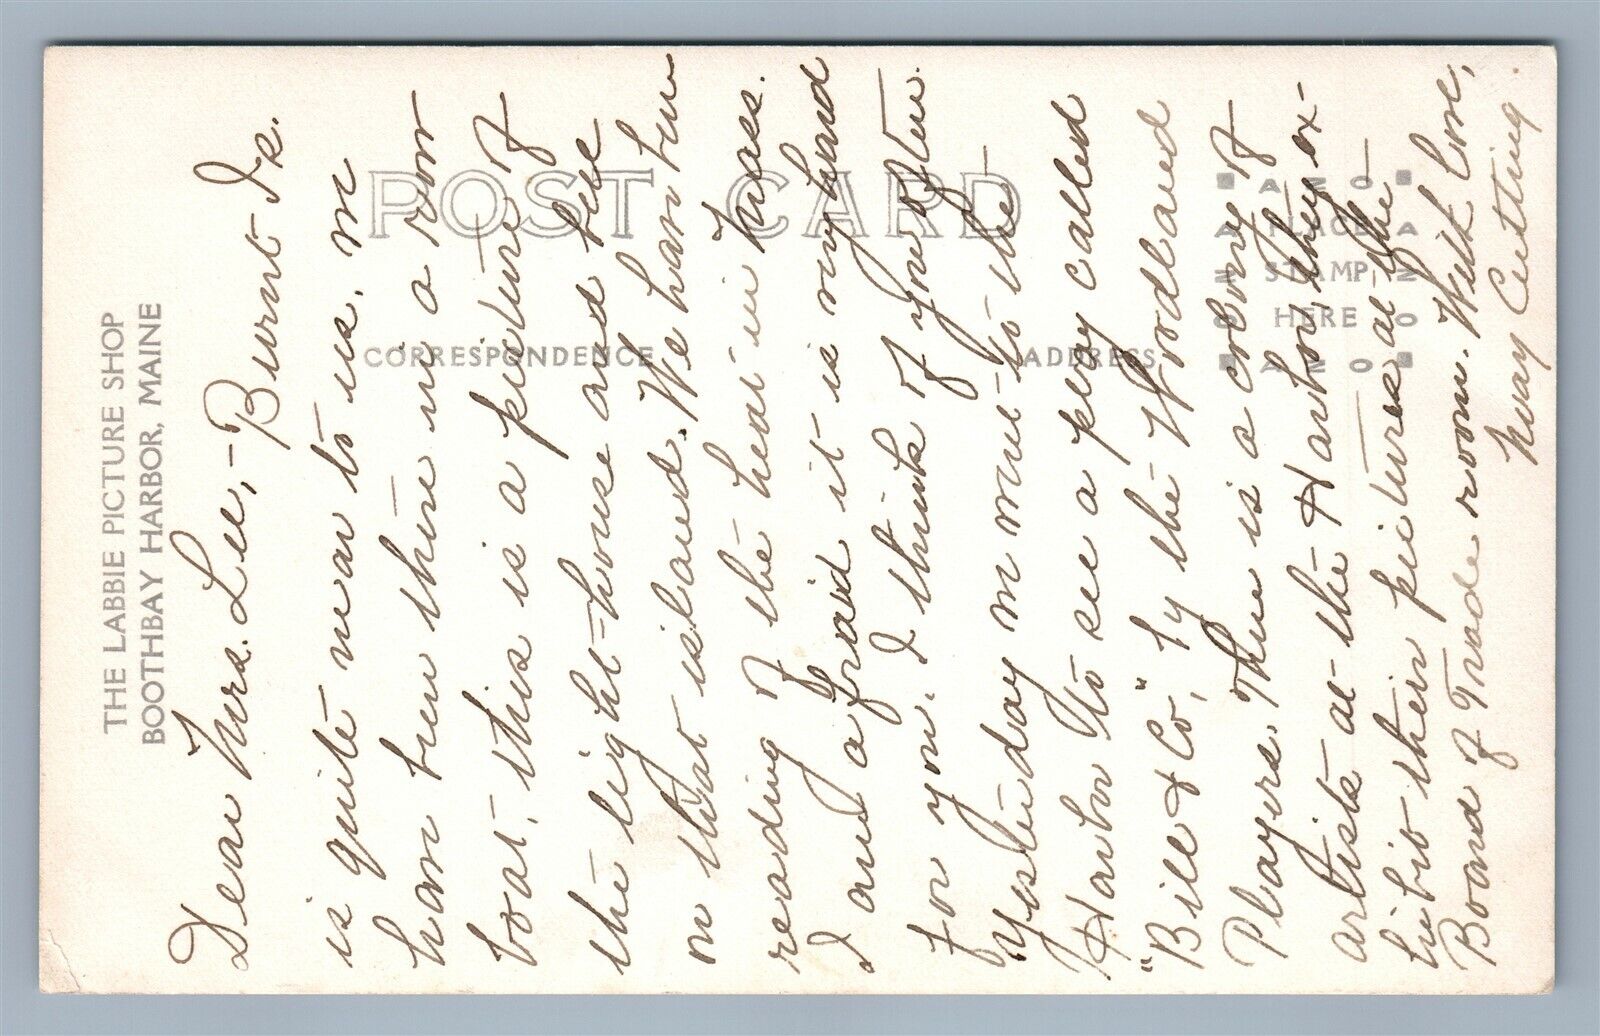 THE LABBIE PICTURE SHOP
BOOTHBAY HARBOR, MAINE
POST CARD
CORRESPONDENCE
ADDRESS
AZO
PLACE
STAMP
HERE
AZO
Dear Mrs. Lee,- Burnt Is.
is quite near to us. We
have been there in a row
boat, this is a picture of
the light-house and the
on that island. We have been
reading of the heat in Mass.
I am afraid it is very hard
for you. I think of you often.
Yesterday we went to the
Harbor to see a play called
"Bill & Co," by the Woodland
Players. There is a colony of
artists at the Harbor, they ex-
hibit their pictures at the
Board of Trade room. With love,
May Cutting.